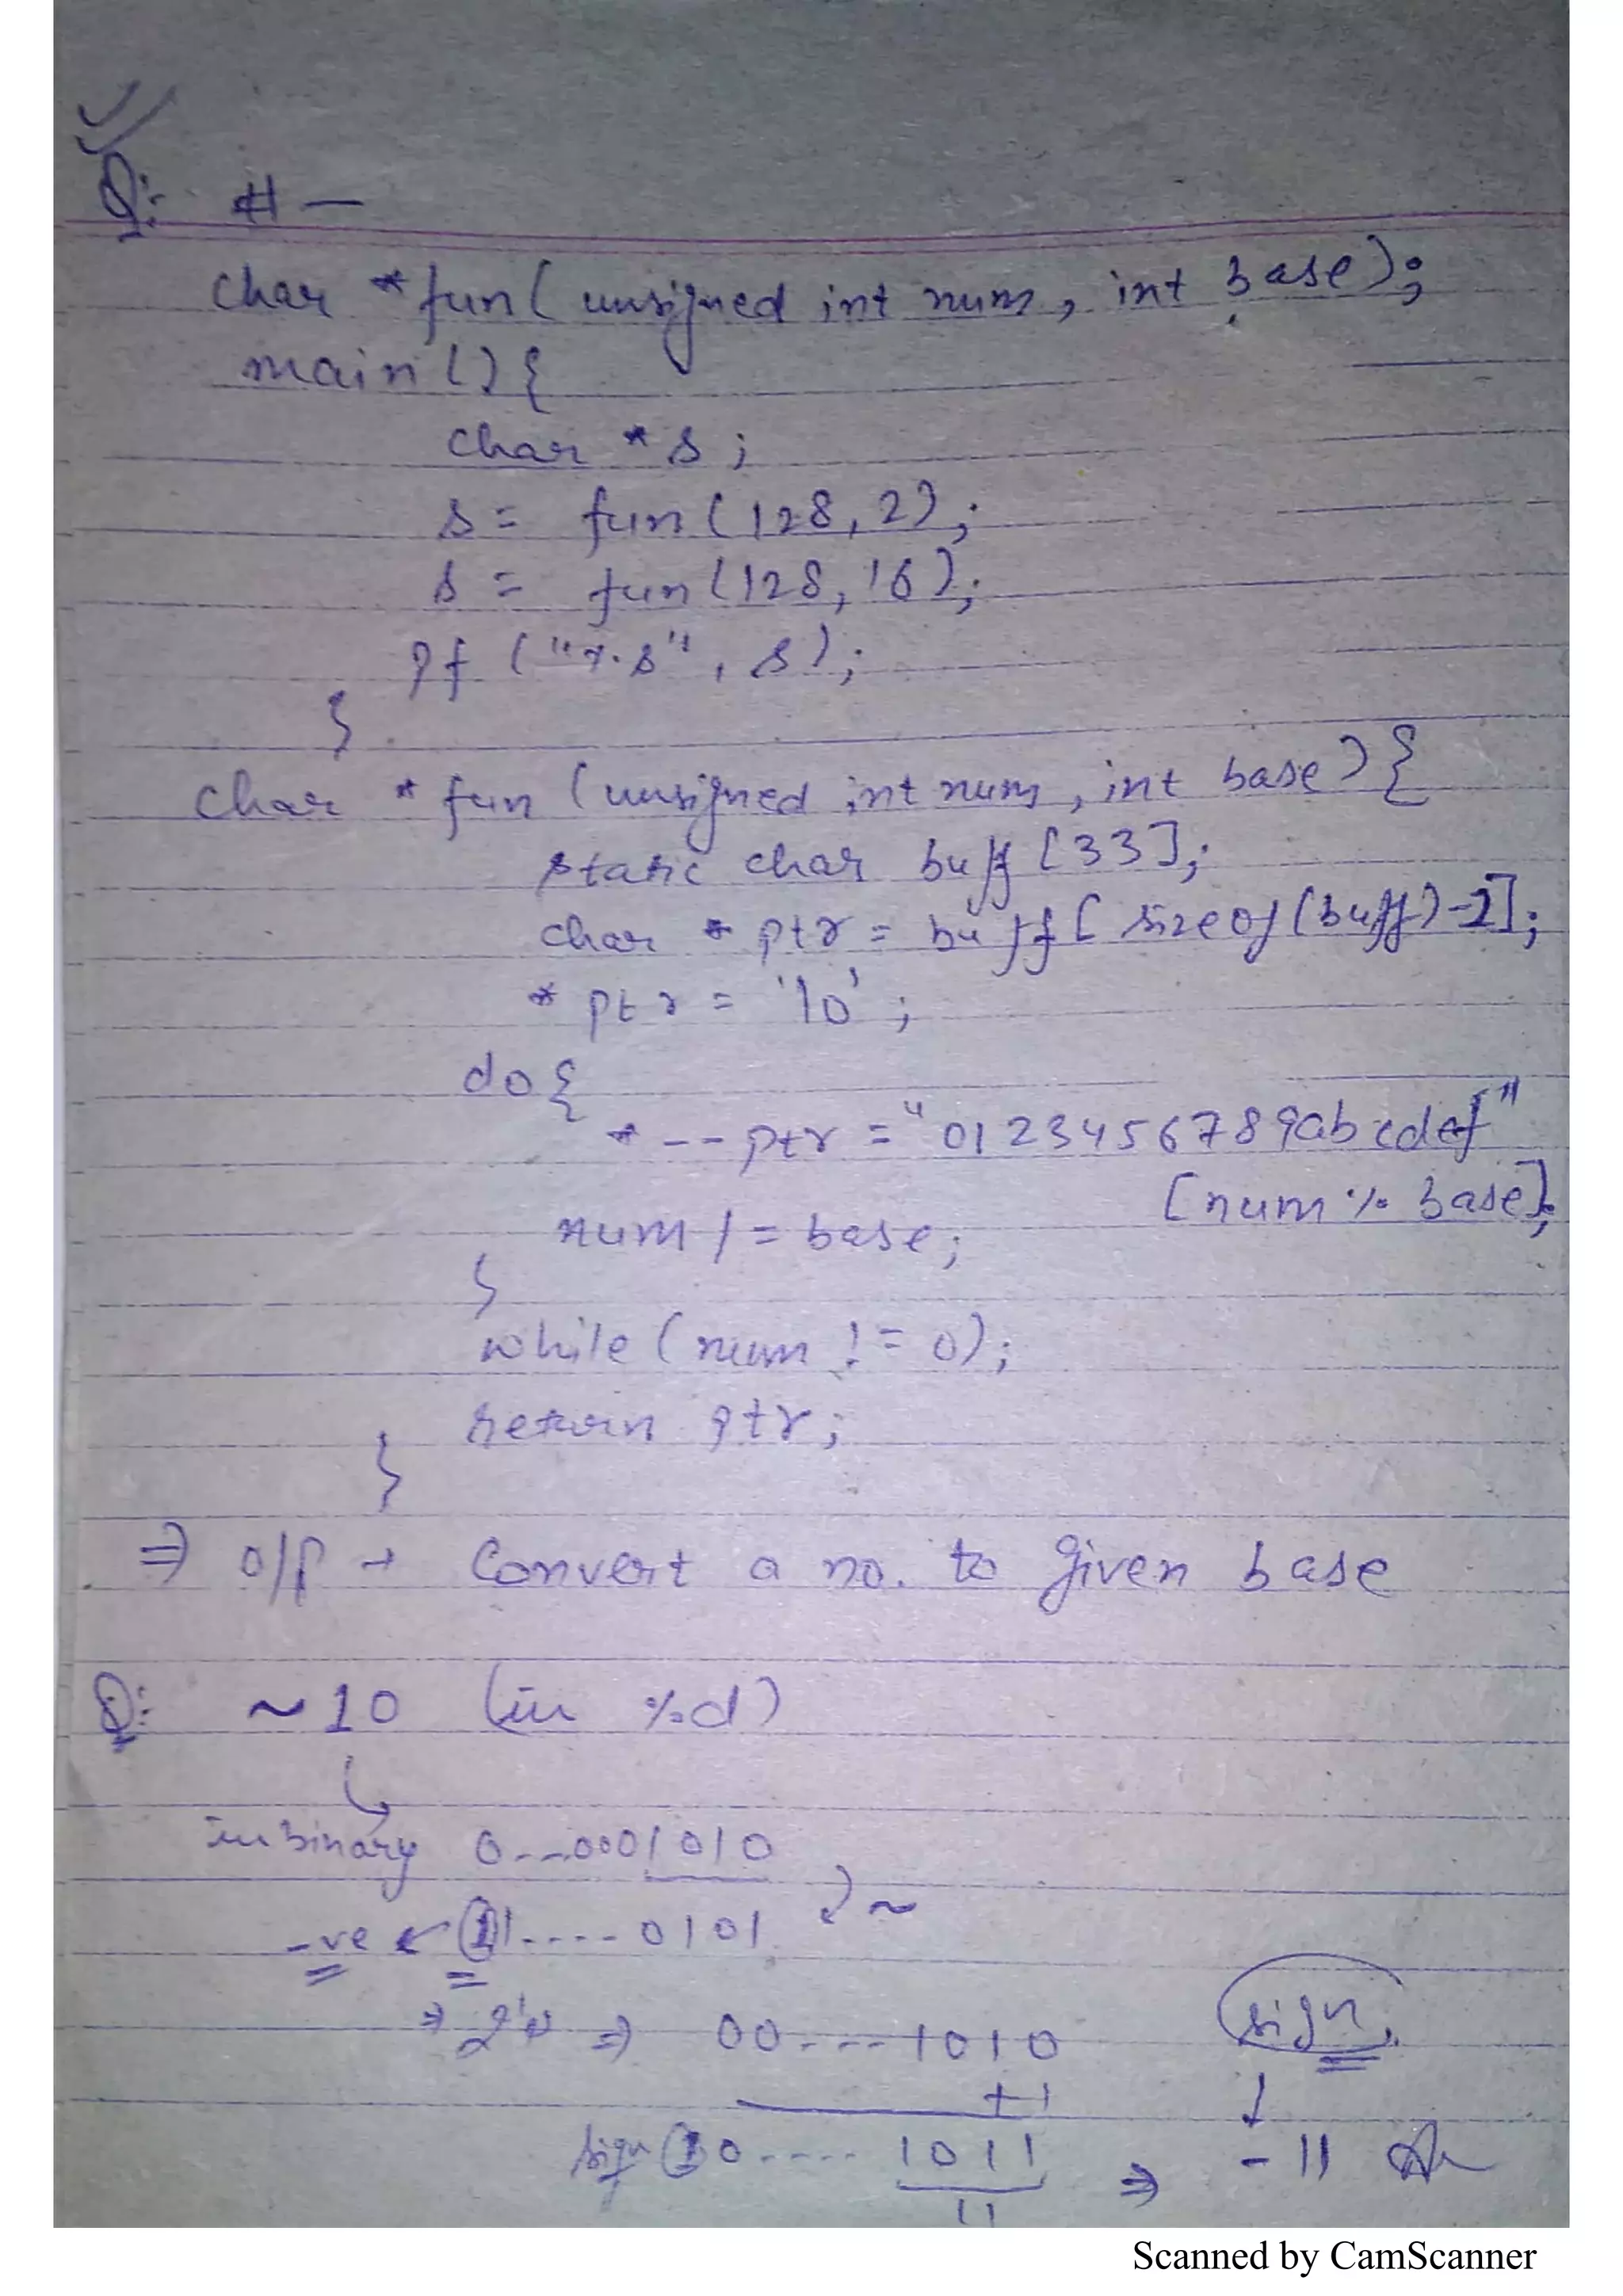 Q: # —
char *fun( unsigned int num, int base);
main(){
char *s;
s = fun(128, 2);
s = fun(128, 16);
pf ("%s", s);
}
char *fun (unsigned int num, int base){
static char buff [33];
char * ptr = buff[ sizeof(buff)-1];
* ptr = '\0';
do{
* --ptr = "0123456789abcdef"
[num % base];
num /= base;
}
while (num != 0);
return ptr;
}
⇒ o/p → Convert a no. to given base
Q: ~10 (in %d)
in binary 0--0001010
~
-ve ← 11....0101
⇒ 2's ⇒ 00---1010
sign
+1
sign 10.....1011 ⇒ -11 Ans
11
Scanned by CamScanner